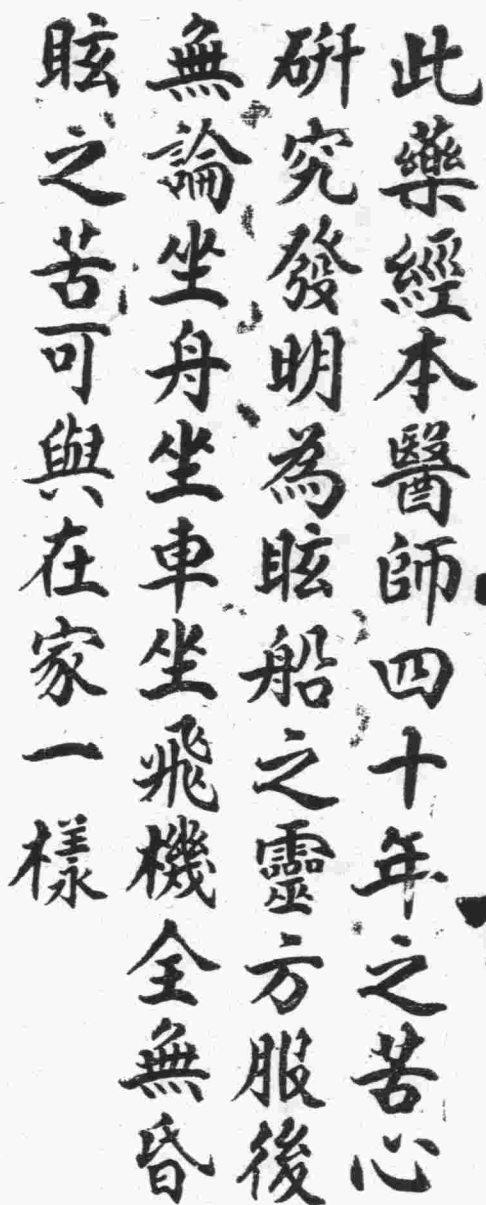 此藥經本醫師四十年之苦心
研究發明為眩船之靈方服後
無論坐舟坐車坐飛機全無昏
眩之苦可與在家一樣